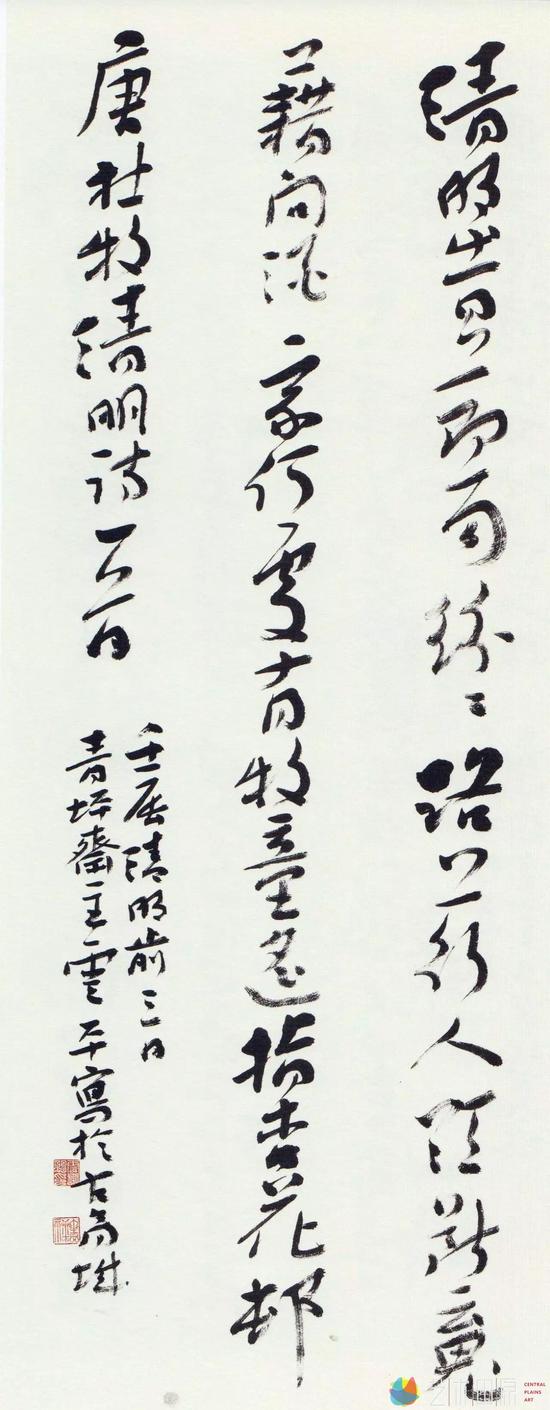 清明峕節雨紛〻路上行人欲斷魂
藉问酒家何處有牧童遙指杏花邨
唐杜牧清明詩一首
壬辰清明前三日
青坪齋主雲平寫於古商城
艺术中原
CENTRAL
PLAINS
ART